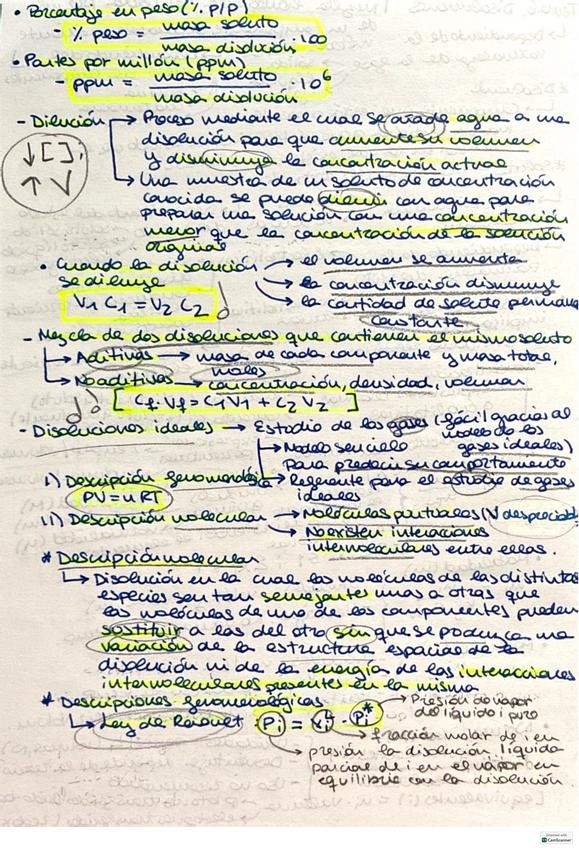 • Porcentaje en peso (% P/P)
% peso = masa soluto / masa disolución · 100
• Partes por millón (ppm)
- ppm = masa soluto / masa disolución · 10⁶
- Dilución → Proceso mediante el cual se añade agua a una
disolución para que aumente su volumen
y disminuya la concentración actual
↓[ ];
↑ V
→ Una muestra de un soluto de concentración
conocida se puede diluir con agua para
preparar una solución con una concentración
menor que la concentración de la solución
original
• Cuando la disolución → el volumen se aumenta
se diluye → la concentración disminuye
V₁ C₁ = V₂ C₂ → la cantidad de soluto permanece
constante
- Mezcla de dos disoluciones que contienen el mismo soluto
→ Aditivas → masa de cada componente y masa total,
moles
→ No aditivas → concentración, densidad, volumen
[Cf·Vf = C1V1 + C2 V2]
- Disoluciones ideales → Estudio de los gases (fácil gracias al
modelo de los
gases ideales)
→ Modelo sencillo
para predecir su comportamiento
I) Descripción fenomenológica → Referente para el estudio de gases
PV = nRT ideales
II) Descripción molecular → Moléculas puntuales (V despreciable)
→ No existen interacciones
intermoleculares entre ellas.
* Descripción molecular
→ Disolución en la cual las moléculas de las distintas
especies son tan semejantes unas a otras que
las moléculas de uno de los componentes pueden
sustituir a las del otro sin que se produzca una
variación de la estructura espacial de la
disolución ni de la energía de las interacciones
intermoleculares presentes en la misma
* Descripciones fenomenológicas
→ Presión de vapor
del líquido i puro
→ Ley de Raoult Pi = xiᴸ · Pi*
→ fracción molar de i en
la disolución líquida
→ presión
parcial de i en el vapor en
equilibrio con la disolución
Scanned with
CamScanner